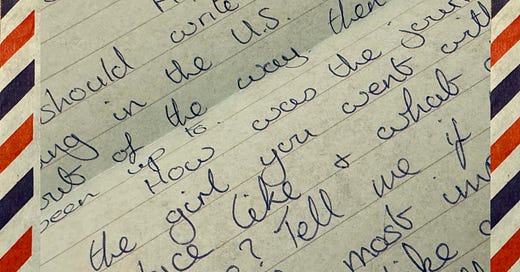 should write
ng in the U.S. then
out of the way
been up to. How was the jour
the girl you went with
like & what
? Tell me if
most im
like